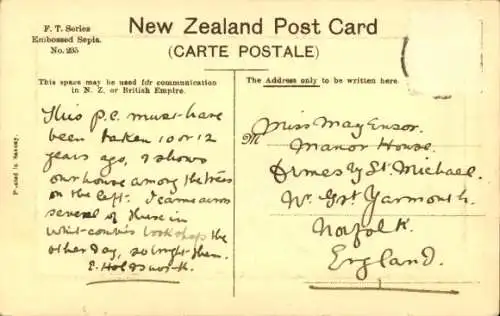 F. T. Series
Embossed Sepia.
No. 235
New Zealand Post Card
(CARTE POSTALE)
This space may be used for communication
in N. Z. or British Empire.
The Address only to be written here.
This p.c. must have
been taken 10 or 12
years ago, & shows
our house among the trees
on the left. I came across
several of these in
Whit-combe's bookshop the
other day, so bought them.
E. Holdsworth.
M Miss May Ensor.
Manor House.
Ormesby St. Michael.
Nr. Grt Yarmouth.
Norfolk.
England.
Printed in Saxony.